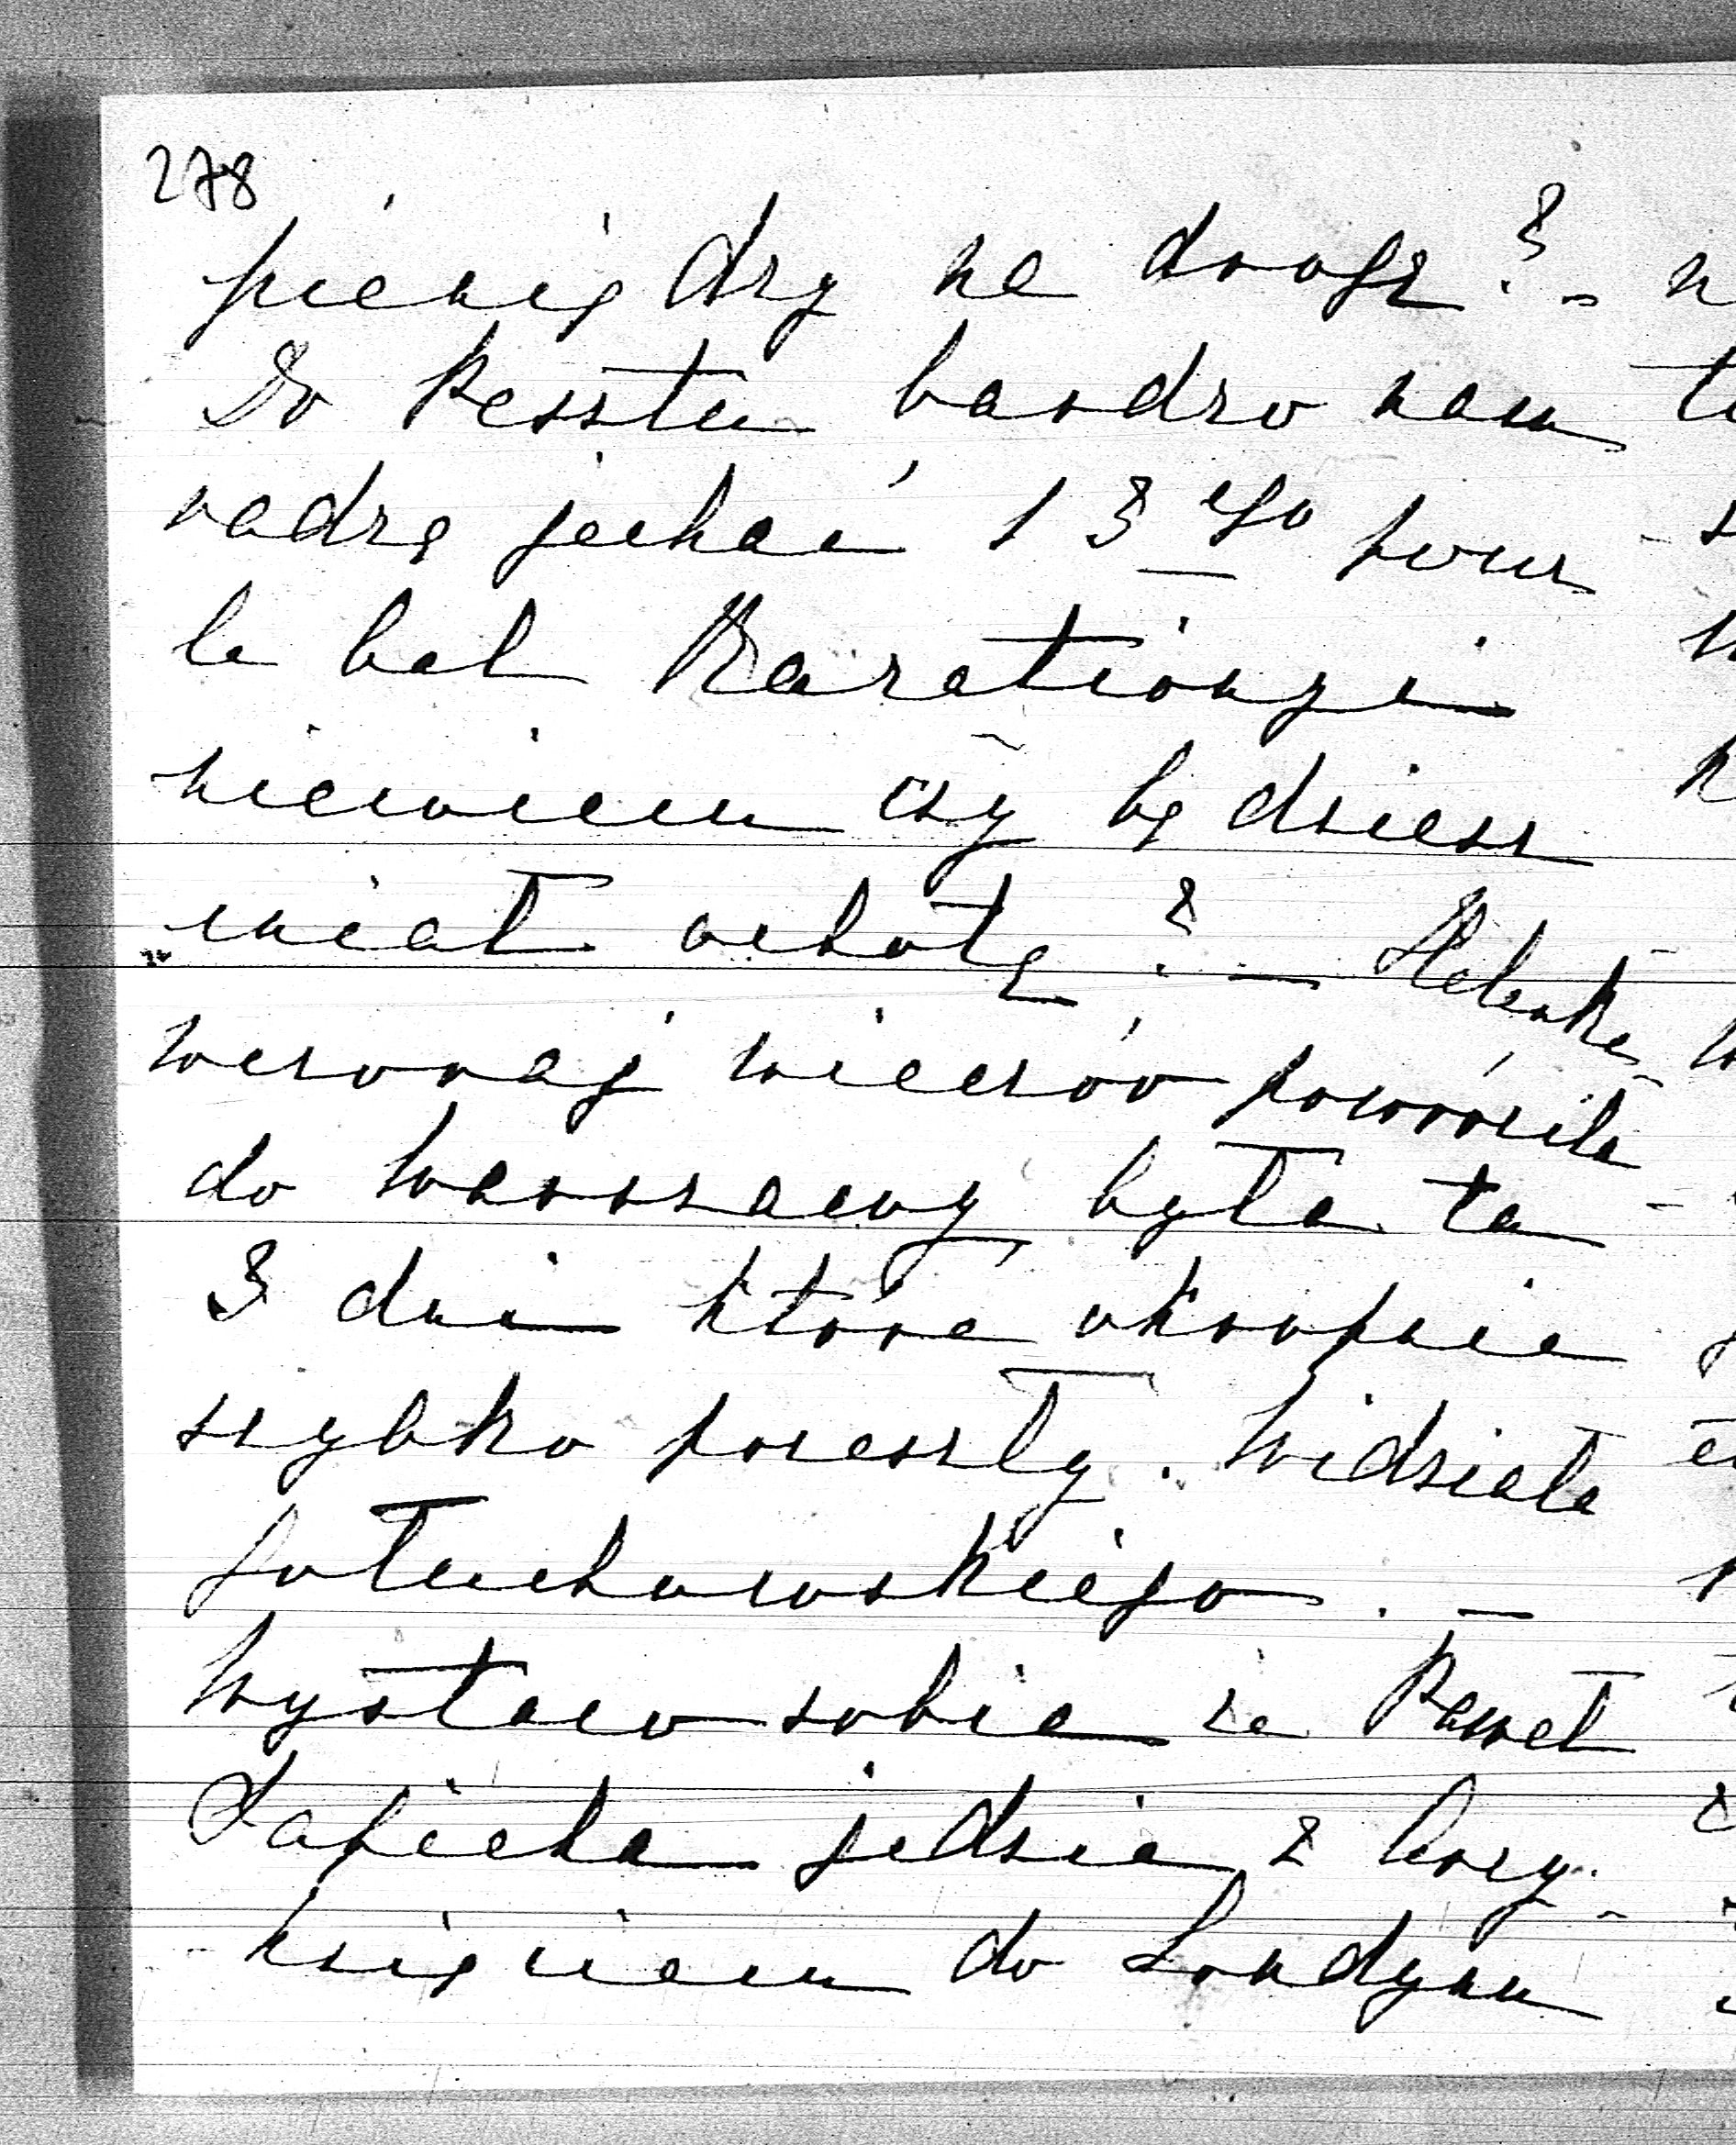 278
pieniędzy na drogę? – n
Do Pesztu bardzo nam t
radzą jechać 13 go pour
le bal
niewiem czy będziesz
miał ochotę? – Helenka
wczoraj wieczór powróciła
do Warszawy była ta
3 dni które okropnie
szybko przeszły. Widziała
Gołuchowskiego. –
Wystaw sobie że Paweł
Sapieha jedzie z Arcy-
księciem do Londynu